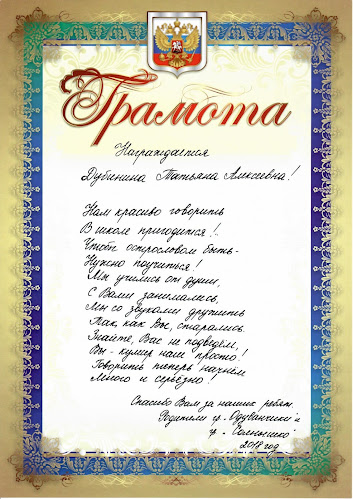 Грамота
Награждается
Дубинина Татьяна Алексеевна!
Нам красиво говорить
В школе пригодится!
Чтобы острословом быть-
Нужно поучиться!
Мы учились от души,
С Вами занимались,
Мы со звуками дружить
Так, как Вы, старались.
Знайте, Вас не подведём,
Вы - кумир нам просто!
Говорить теперь начнём
Много и серьёзно!
Спасибо Вам за наших ребят!
Родители гр. "Одуванчики" и
гр. "Солнышко"
2018 год